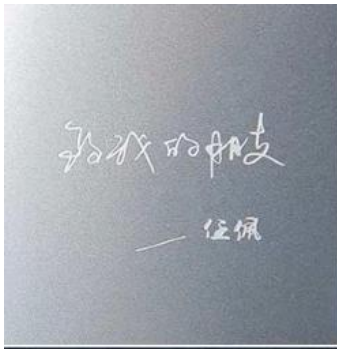 给我的朋友
— 任佩